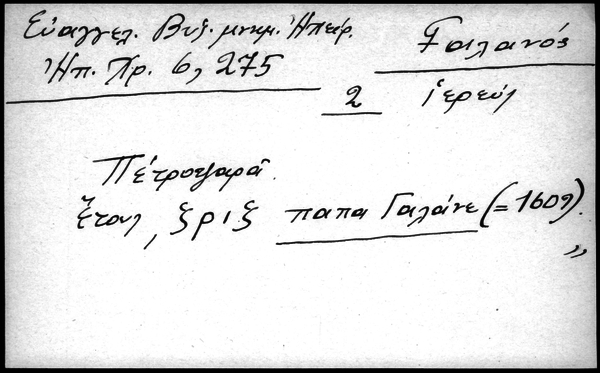 Εὐαγγελ. Βυζ. μνημ. Ἠπείρ.
Ἠπ. Χρ. 6, 275
Γαλανός
2 ἱερεύς
Πέτροτζαρᾶ
ἔτους, ζριζ παπα Γαλάνε (= 1609).
"